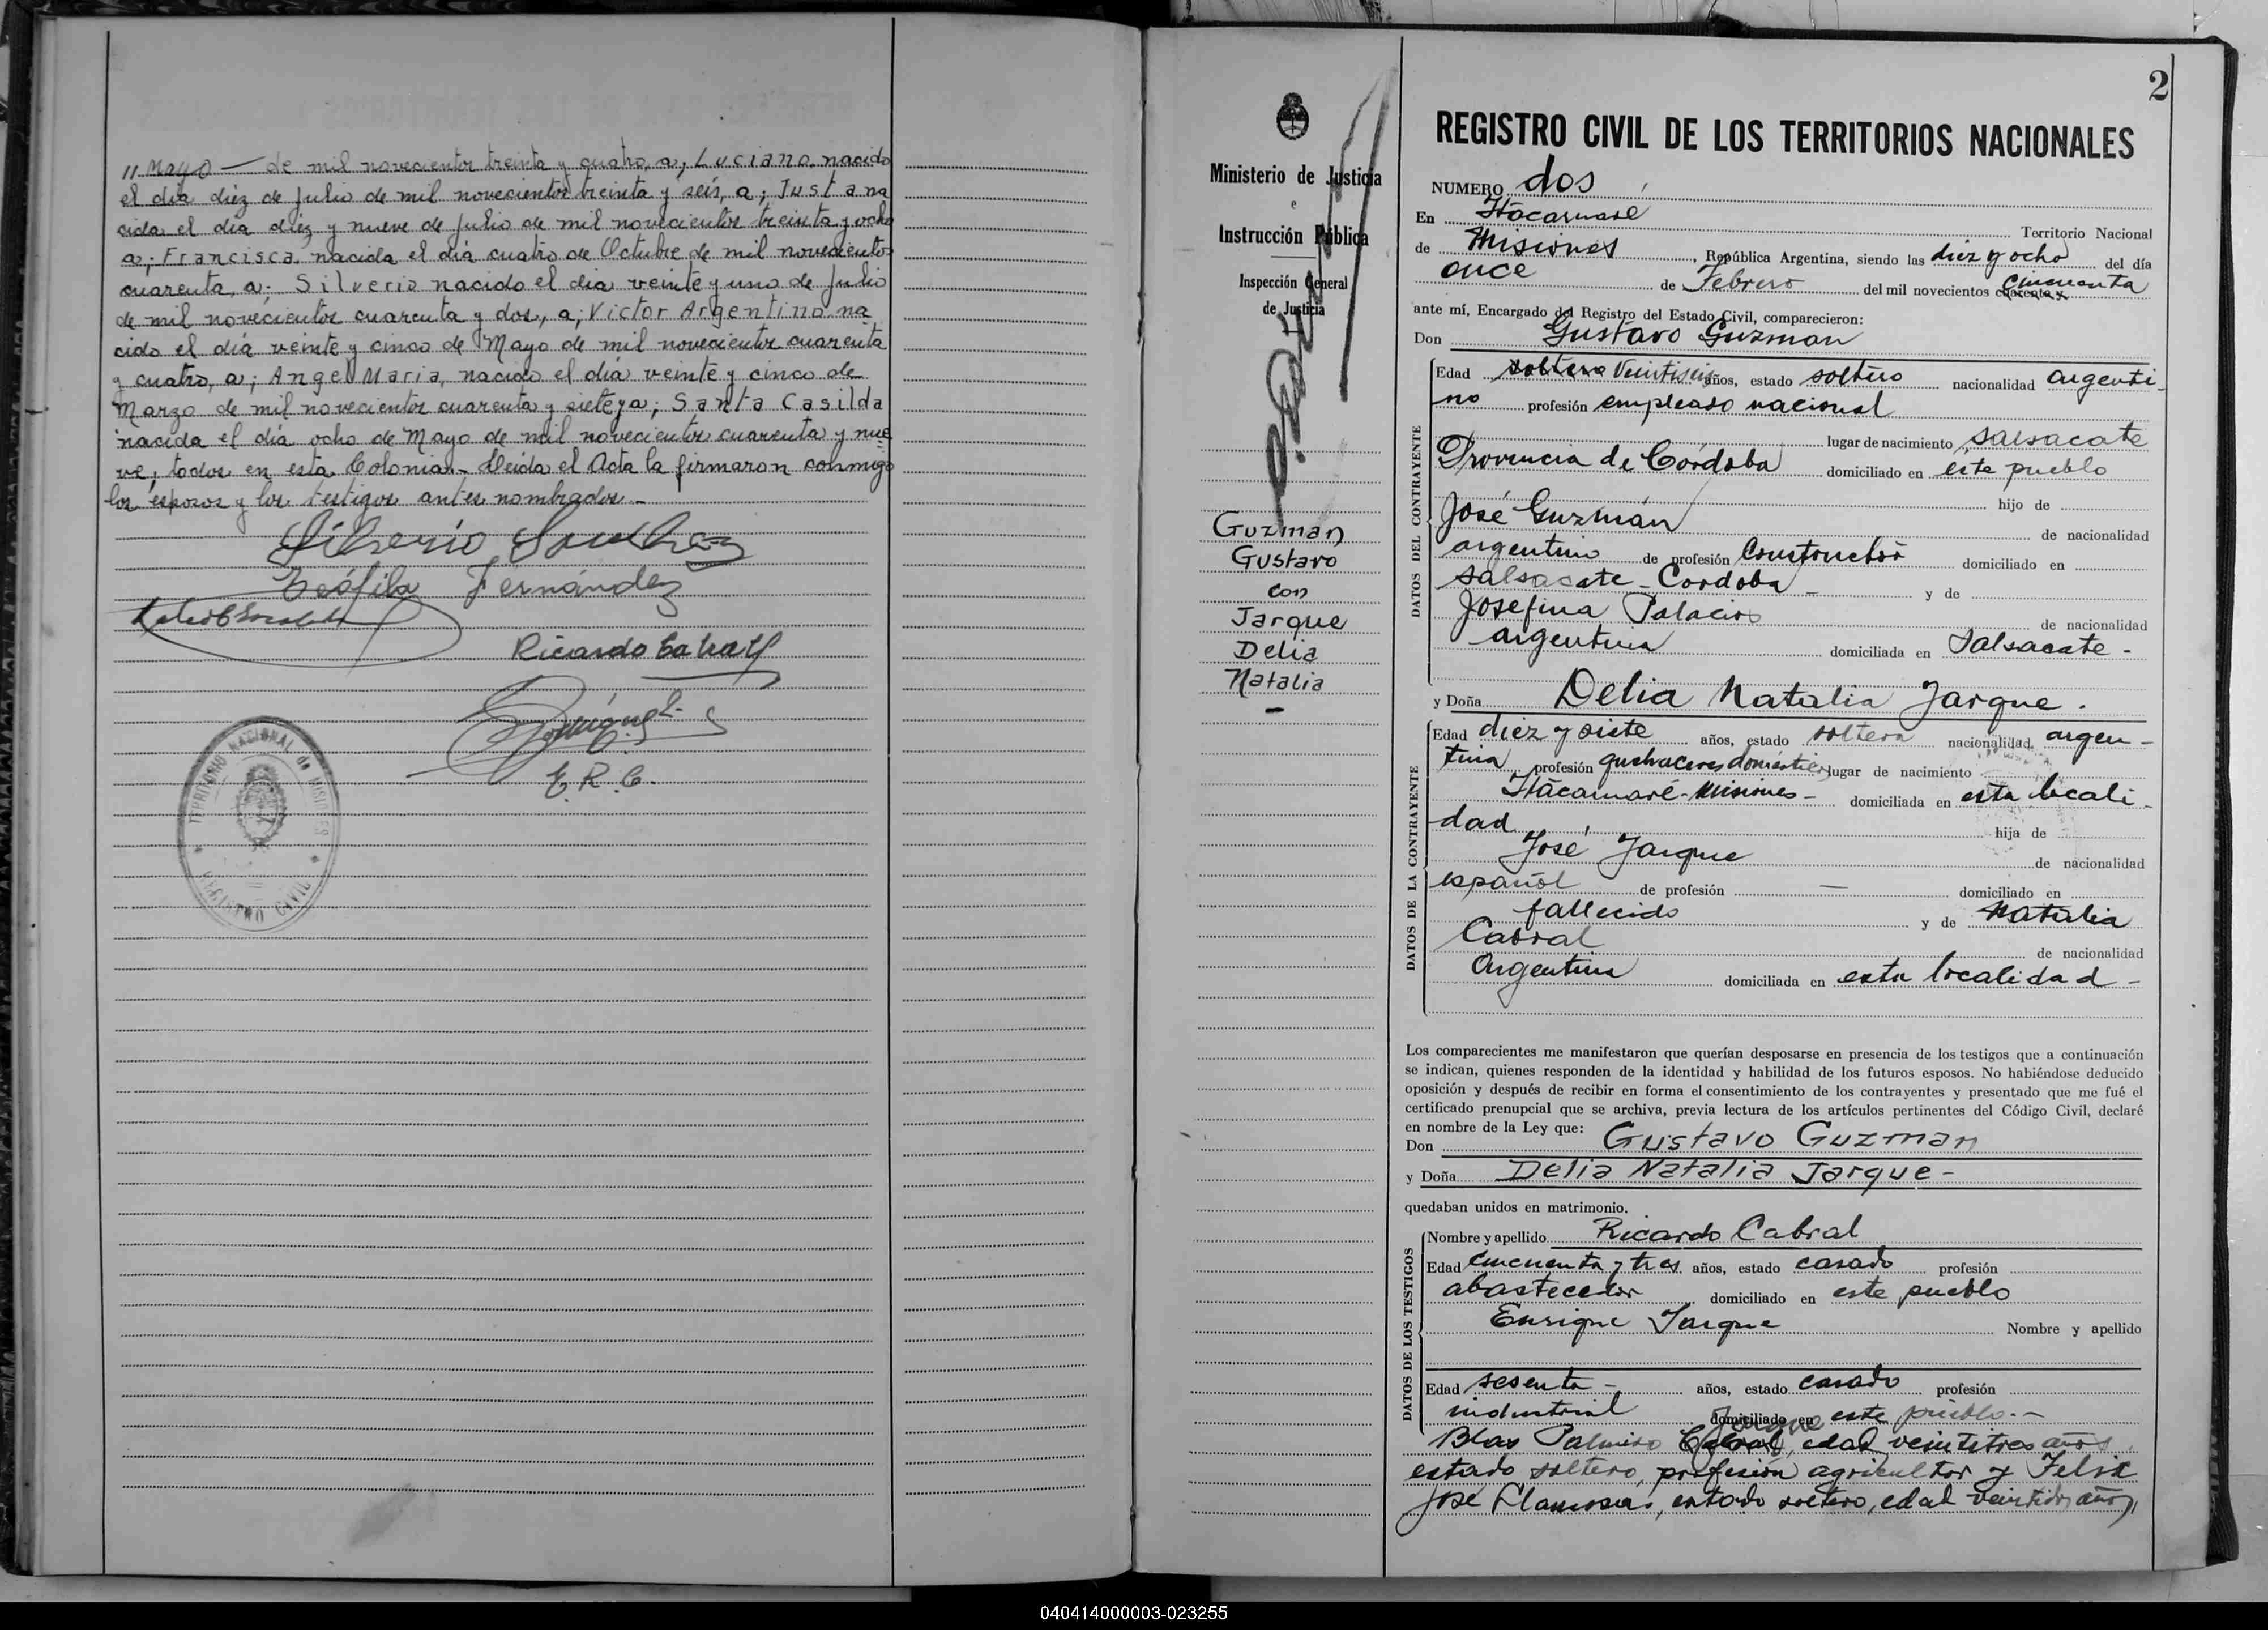 11 Mayo — de mil novecientos treinta y cuatro, a; Luciano, nacido
el día diéz de Julio de mil novecientos treinta y seis, a; Justa na
cida el día diéz y nueve de Julio de mil novecientos treinta y ocho
a; Francisca, nacida el día cuatro de Octubre de mil novecientos
cuarenta, a; Silverio nacido el día veinte y uno de Julio
de mil novecientos cuarenta y dos, a; Victor Argentino na
cido el día veinte y cinco de Mayo de mil novecientos cuarenta
y cuatro, a; Angel Maria, nacido el día veinte y cinco de
Marzo de mil novecientos cuarenta y siete y a; Santa Casilda
nacida el día ocho de Mayo de mil novecientos cuarenta y nue
ve; todos en esta Colonia.- Leida el Acta la firmaron conmigo
los esposos y los testigos antes nombrados.-
Teófila Fernández
Ricardo Cabral
E. R. C.
TERRITORIO NACIONAL de MISIONES
REGISTRO CIVIL
Ministerio de Justicia
e
Instrucción Pública
Inspección General
de Justicia
Guzman
Gustavo
con
Jarque
Delia
Natalia
2
REGISTRO CIVIL DE LOS TERRITORIOS NACIONALES
NUMERO dos
En Itácaruaré Territorio Nacional
de Misiones, República Argentina, siendo las diez y ocho del día
once de Febrero del mil novecientos cuarenta y cincuenta
ante mí, Encargado del Registro del Estado Civil, comparecieron:
Don Gustavo Guzman
DATOS DEL CONTRAYENTE
Edad soltero Veintiseis años, estado soltero nacionalidad argenti-
no profesión empleado nacional
lugar de nacimiento Salsacate
Provincia de Córdoba domiciliado en éste pueblo
hijo de
José Guzmán de nacionalidad
argentino de profesión Constructor domiciliado en
Salsacate - Cordoba - y de
Josefina Palacios de nacionalidad
argentina domiciliada en Salsacate -
y Doña Delia Natalia Jarque.
DATOS DE LA CONTRAYENTE
Edad diez y siete años, estado soltera nacionalidad argen-
tina profesión quehaceres domésticos lugar de nacimiento
Itácaruaré - Misiones - domiciliada en esta locali-
dad hija de
José Jarque de nacionalidad
español de profesión — domiciliado en
fallecido y de Natalia
Cabral de nacionalidad
Argentina domiciliada en esta localidad -
Los comparecientes me manifestaron que querían desposarse en presencia de los testigos que a continuación
se indican, quienes responden de la identidad y habilidad de los futuros esposos. No habiéndose deducido
oposición y después de recibir en forma el consentimiento de los contrayentes y presentado que me fué el
certificado prenupcial que se archiva, previa lectura de los artículos pertinentes del Código Civil, declaré
en nombre de la Ley que:
Don Gustavo Guzman
y Doña Delia Natalia Jarque -
quedaban unidos en matrimonio.
DATOS DE LOS TESTIGOS
Nombre y apellido Ricardo Cabral
Edad cincuenta y tres años, estado casado profesión
abastecedor domiciliado en este pueblo
Enrique Jarque Nombre y apellido
Edad sesenta - años, estado casado profesión
industrial domiciliado en este pueblo.-
Jarque
Blas Palmiro Cabral, edad veintitres años
estado soltero, profesión agricultor y Felix
José Llamosas, estado soltero, edad veintidos años,
040414000003-023255